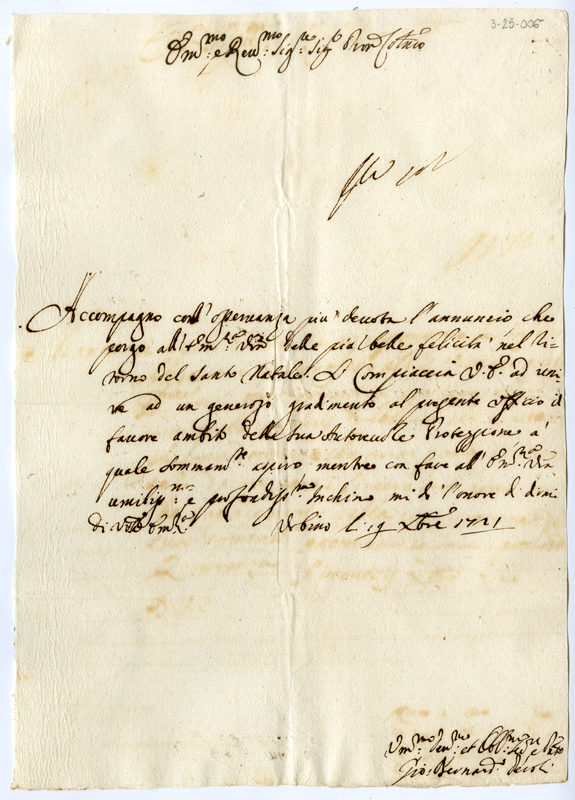 3-25-006
Em.mo e Rev.mo Sig.r Sig.r Pron Col.mo
Accompagno coll' osservanza più devota l'annuncio, che
porgo all' Em.za Vra delle più belle felicità nel ri-
torno del Santo Natale. Si compiaccia V. E. ad uni-
re ad un generoso gradimento al presente officio il
favore ambito della Sua Autorevole Protezzione à
quale sommam.te aspiro mentre con fare all' Em.za Vra
umiliss.mo e profondiss.mo Inchino mi dò l'onore di dirmi
di V. Em.za Urbino li 19 Xbre 1721
Um.mo Dev.mo et Obl.mo
Gio: Bernard.